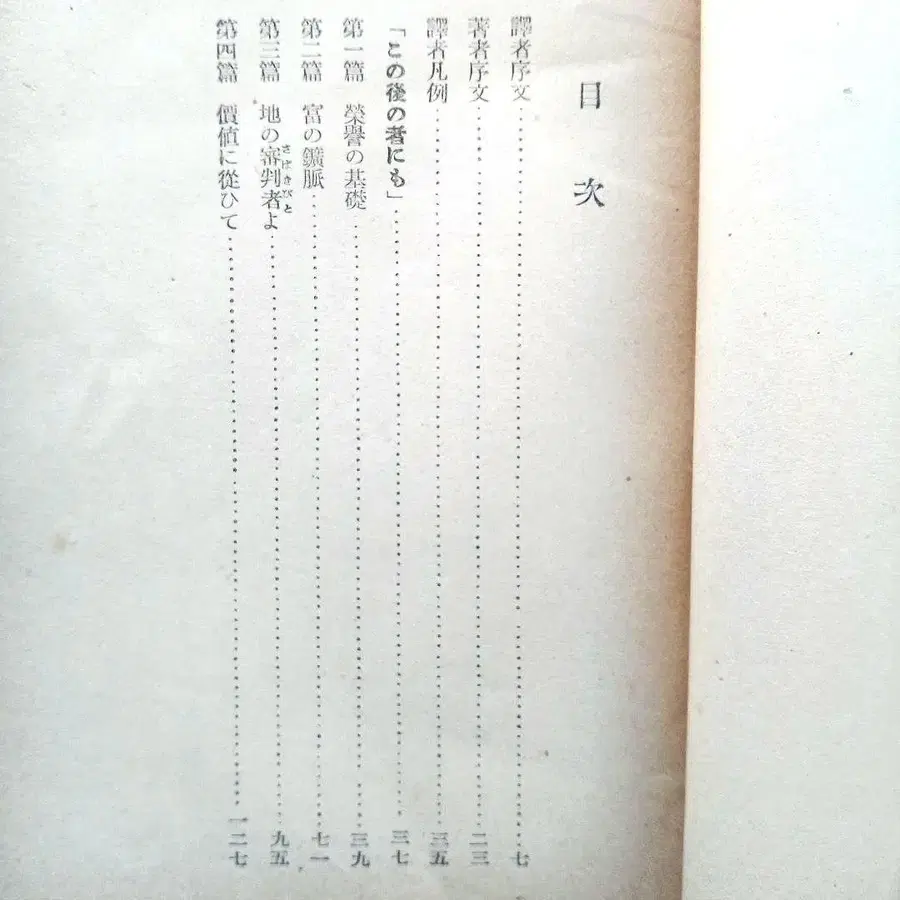 目次
譯者序文……七
著者序文……二三
譯者凡例……三五
「この後の者にも」……三七
第一篇 榮譽の基礎……三九
第二篇 富の鑛脈……七一
第三篇 地の審判者よ……九五
さばきびと
第四篇 價値に從ひて……一二七